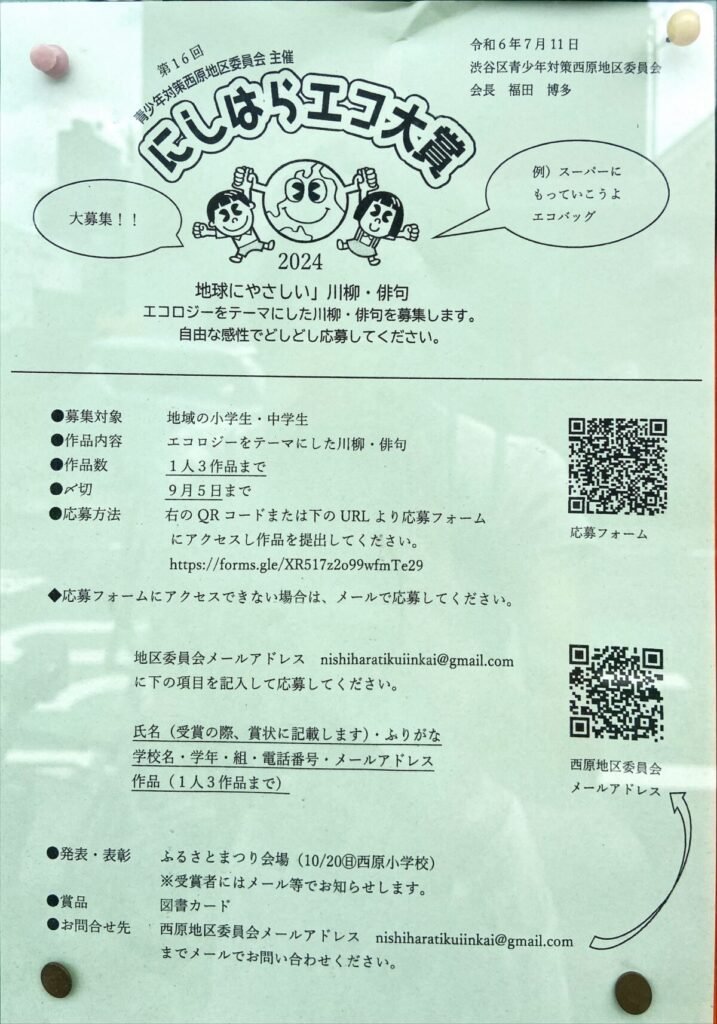 令和６年７月１１日
渋谷区青少年対策西原地区委員会
会長　福田　博多
第１６回
青少年対策西原地区委員会 主催
にしはらエコ大賞
大募集！！
例）スーパーに
もっていこうよ
エコバッグ
2024
地球にやさしい」川柳・俳句
エコロジーをテーマにした川柳・俳句を募集します。
自由な感性でどしどし応募してください。
●募集対象　地域の小学生・中学生
●作品内容　エコロジーをテーマにした川柳・俳句
●作品数　１人３作品まで
●〆切　９月５日まで
●応募方法　右の QR コードまたは下の URL より応募フォーム
にアクセスし作品を提出してください。
https://forms.gle/XR517z2o99wfmTe29
応募フォーム
◆応募フォームにアクセスできない場合は、メールで応募してください。
地区委員会メールアドレス　nishiharatikuiinkai@gmail.com
に下の項目を記入して応募してください。
氏名（受賞の際、賞状に記載します）・ふりがな
学校名・学年・組・電話番号・メールアドレス
作品（１人３作品まで）
西原地区委員会
メールアドレス
●発表・表彰　ふるさとまつり会場（10/20㊐西原小学校）
※受賞者にはメール等でお知らせします。
●賞品　図書カード
●お問合せ先　西原地区委員会メールアドレス　nishiharatikuiinkai@gmail.com
までメールでお問い合わせください。